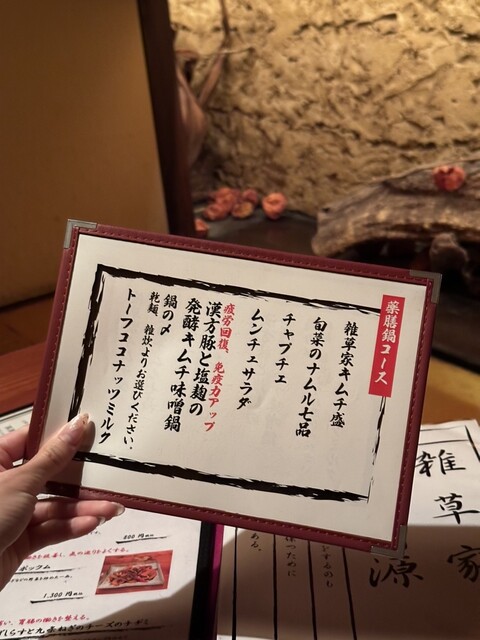 薬膳鍋コース
雑草家キムチ盛
旬菜のナムル七品
チャプチェ
ムンチェサラダ
疲労回復、免疫力アップ
漢方豚と塩麹の
発酵キムチ味噌鍋
鍋の〆
乾麺、雑炊よりお選びください。
トーフココナッツミルク
雑草家
源
800円
1,300円